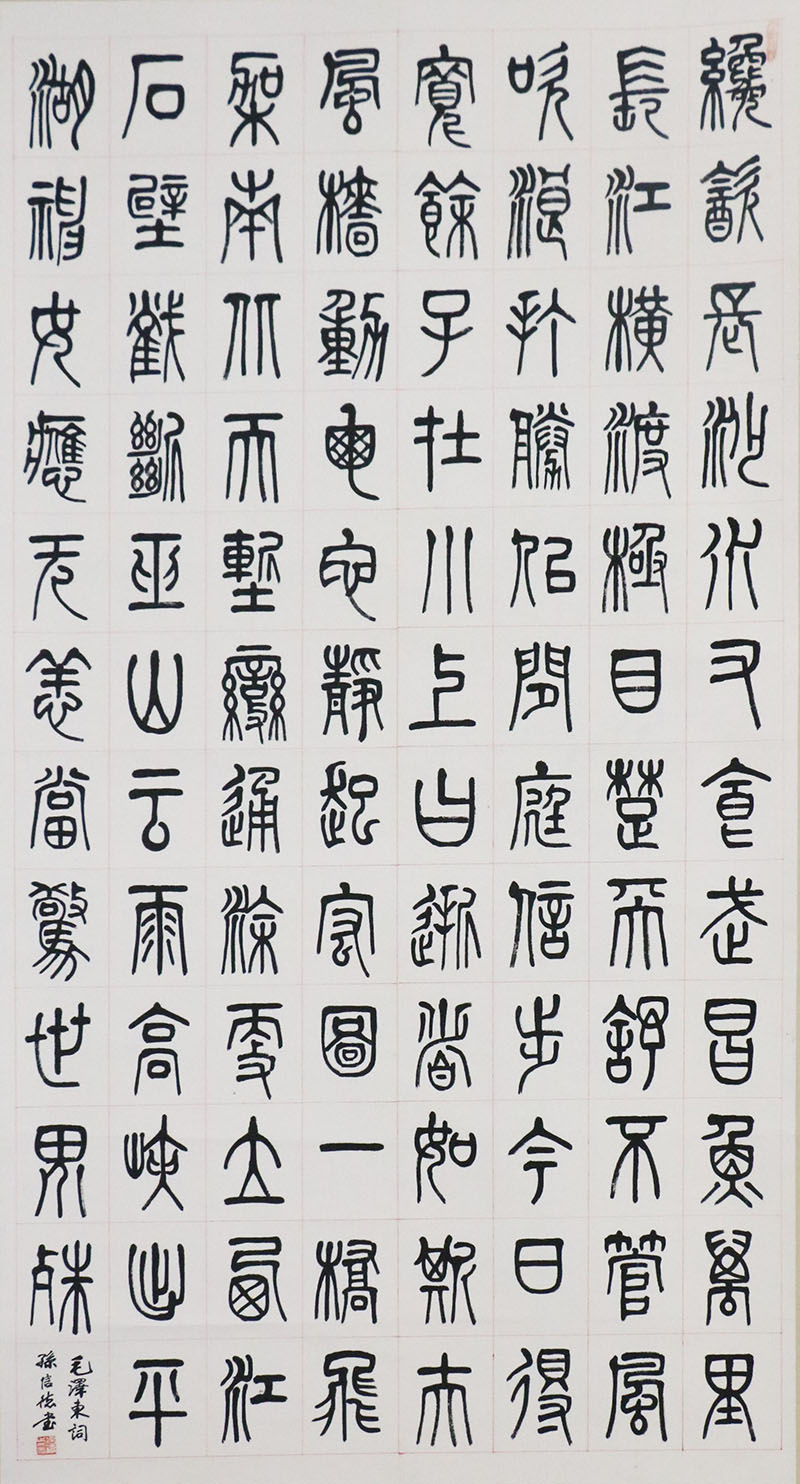 纔飲長沙水又食武昌魚萬里
長江橫渡極目楚天舒不管風
吹浪打勝似閒庭信步今日得
寬餘子在川上曰逝者如斯夫
風檣動龜它靜起宏圖一橋飛
架南北天塹變通涂更立西江
石壁截斷巫山云雨高峽出平
湖神女應无恙當驚世界殊
毛澤東詞
孫信德書